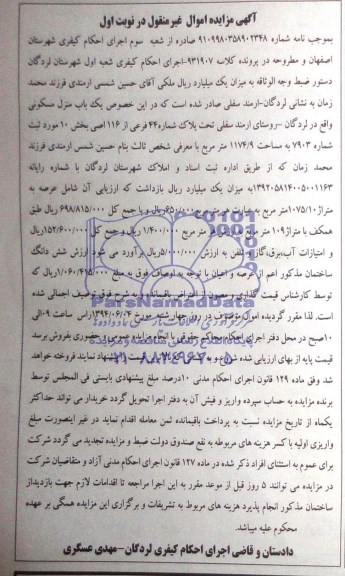 آگهی مزایده اموال غیرمنقول در نوبت اول
بموجب نامه شماره ۹۱۰۹۹۸۰۳۵۸۹۰۲۳۴۸ صادره از شعبه سوم اجرای احکام کیفری شهرستان
اصفهان و مطروحه در پرونده کلاسه ۹۳۱۹۰۷-اجرای احکام کیفری شعبه اول شهرستان لردگان
دستور ضبط وجه الوثاقه به میزان یک میلیارد ریال ملکی آقای حسین شمسی ارمندی فرزند محمد
زمان به نشانی لردگان-ارمند سفلی صادر شده است که در این خصوص یک باب منزل مسکونی
واقع در لردگان -روستای ارمند سفلی تحت پلاک شماره۴۴ فرعی از ۱۱۶ اصی بخش ۱۰ مورد ثبت
شماره ۷۹۰۳ به مساحت ۱۱۷۴/۹ متر مربع با معرفی شخص ثالث بنام حسین شمس ارمندی فرزند
محمد زمان که از طریق اداره ثبت اسناد و املاک شهرستان لردگان با شماره رایانه
۱۳۹۲۰۵۸۱۴۰۰۵۰۰۱۱۶۳به میزان یک میلیارد ریال بازداشت که ارزیابی آن شامل عرصه به
متراژ۱۰۷۵/۱۰متر مربع به عبارت هر متر مربع ۶۵۰/۰۰۰ریال و با جمع کل ۶۹۸/۸۱۵/۰۰۰ ریال طبق
همکف با متراژ۱۰۹ متر مربع هر متر مربع ۱/۴۰۰/۰۰۰ ریال و جمع کل ۱۵۲/۶۰۰/۰۰۰ریال
و امتیازات آب،برق،گاز و تلفن به ارزش ۵/۰۰۰/۰۰۰ریال برآورد می شود ارزش شش دانگ
ساختمان مذکور اعم از عرصه و اعیان با توجه به اوصاف فوق به مبلغ ۱/۰۶۰/۴۱۵/۰۰۰ریال
توسط کارشناس قیمت گذاری و مصون از اعتراض باقیمانده به شرح فوق توصیف اجمالی شده
است. لذا مقرر گردیده اموال موصوف در روز چهارشنبه مورخ ۱۳۹۴/۰۶/۰۴راس ساعت ۰۹الی
۱۰صبح در محل دفتر اجرای احکام حقوقی با انجام مزایده عمومی و حضوری بفروش برسد
قیمت پایه از بهای ارزیابی شده شروع و به کسانی که بالاترین قیمت را پیشنهاد نمایند فروخته خواهد
شد وفق ماده ۱۲۹ قانون اجرای احکام مدنی ۱۰درصد مبلغ پیشنهادی بایستی فی المجلس توسط
برنده مزایده به حساب سپرده واریز و فیش آن به دفتر اجرا تحویل گردد خریدار می تواند حداکثر
یکماه از تاریخ مزایده نسبت به پرداخت باقیمانده ثمن معامله اقدام نماید در غیر اینصورت مبلغ
واریزی اولیه با کسر هزینه های مربوطه به نفع صندوق دولت ضبط و مزایده تجدید می گردد شرکت
برای عموم به استثنای افراد ذکر شده در ماده ۱۲۷ قانون اجرای احکام مدنی آزاد و متقاضیان شرکت
در مزایده می توانند ۵ روز قبل از موعد مقرر به این اجرا مراجعه تا اقدامات لازم جهت بازدیداز
ساختمان مذکور انجام پذیرد هزینه های مربوط به تشریفات و برگزاری این مزایده همگی بر عهده
محکوم علیه میباشد.
دادستان و قاضی اجرای احکام کیفری لردگان-مهدی عسگری
ParsNamadData
۰۲۱-۸۸۳۴۹۶۷۰-۵